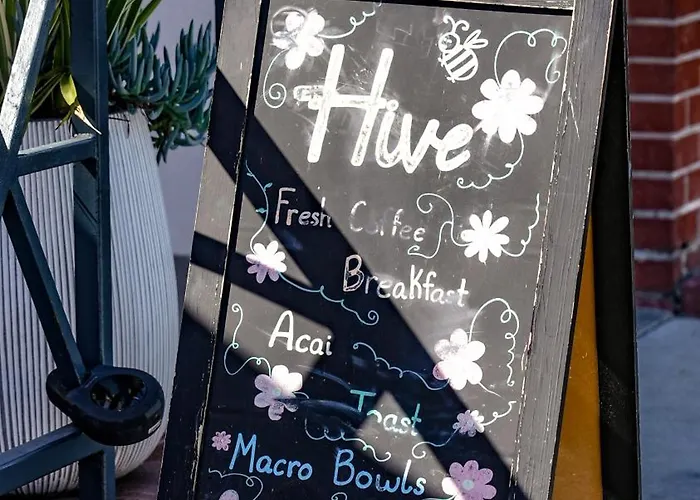 Hive
Fresh Coffee
Breakfast
Acai
Toast
Macro Bowls